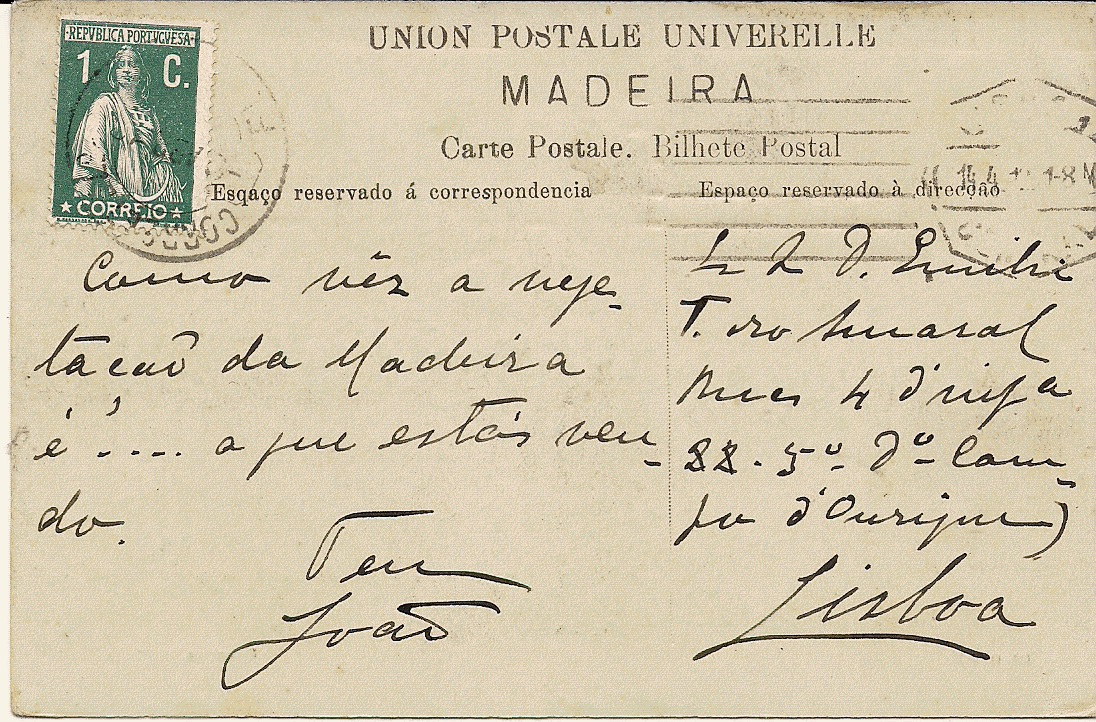 REPVBLICA PORTVGVESA
1 C.
CORREIO
UNION POSTALE UNIVERELLE
MADEIRA
Carte Postale. Bilhete Postal
Esqaço reservado á correspondencia
Espaço reservado à direcção
Como vêz a veje-
tacaõ da Madeira
é .... o que estás ven-
do.
Teu
João
D. Emilia
T. do Amaral
4 d'
22 - 5º Dº Cam-
po d'Ourique)
Lisboa